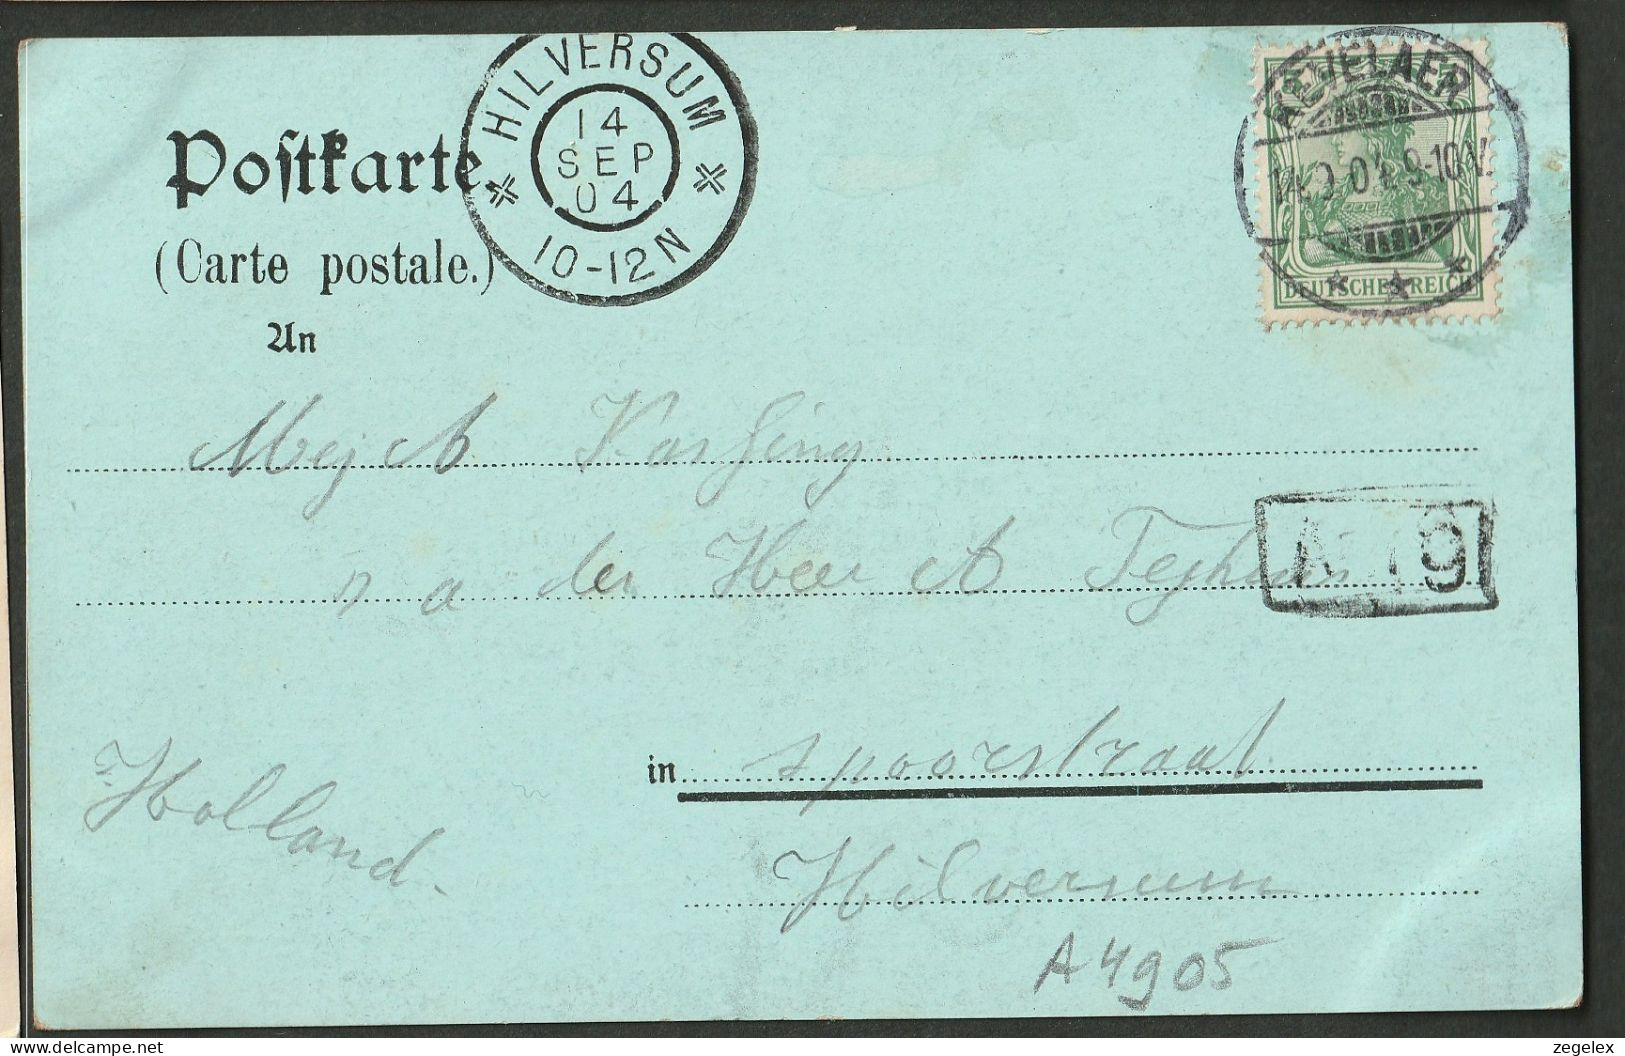 HILVERSUM
14
SEP
04
10-12N
KEVELAER
14.9.04.9-10V.
DEUTSCHES REICH
Poſtkarte.
(Carte postale.)
An
Mej A
n a den Heer A
A 19
in spoorstraat
Holland.
Hilversum
A4905
zegelex